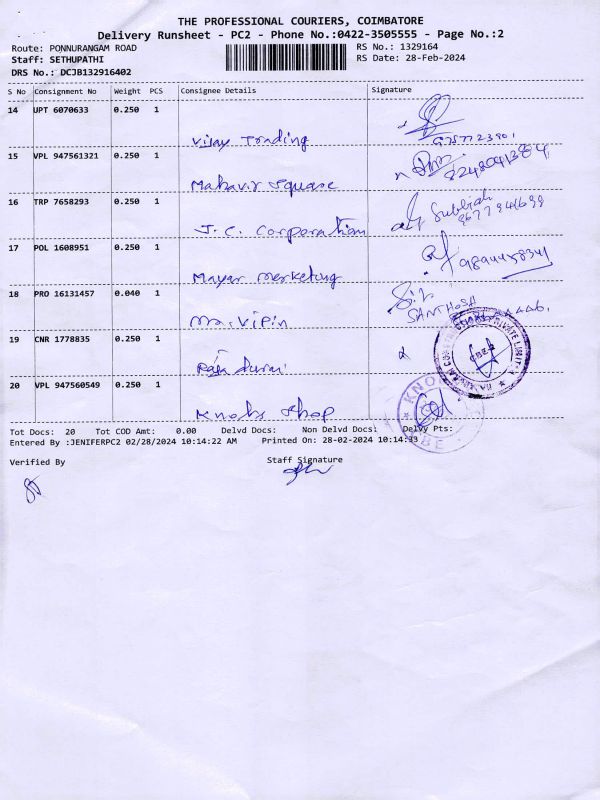 THE PROFESSIONAL COURIERS, COIMBATORE
Delivery Runsheet - PC2 - Phone No.:0422-3505555 - Page No.:2
Route: PONNURANGAM ROAD
RS No.: 1329164
Staff: SETHUPATHI
RS Date: 28-Feb-2024
DRS No.: DCJB132916402
S No Consignment No Weight PCS Consignee Details Signature
14 UPT 6070633 0.250 1
Vijay Trading
15 VPL 947561321 0.250 1
Mahavir Square
16 TRP 7658293 0.250 1
J.C. Corporation
17 POL 1608951 0.250 1
Mayar Merketing
18 PRO 16131457 0.040 1
Mr. Vipin
19 CNR 1778835 0.250 1
Raja Durai
20 VPL 947560549 0.250 1
Knobs Shop
Tot Docs: 20 Tot COD Amt: 0.00 Delvd Docs: Non Delvd Docs: Delvy Pts:
Entered By :JENIFERPC2 02/28/2024 10:14:22 AM Printed On: 28-02-2024 10:14:33
Verified By Staff Signature